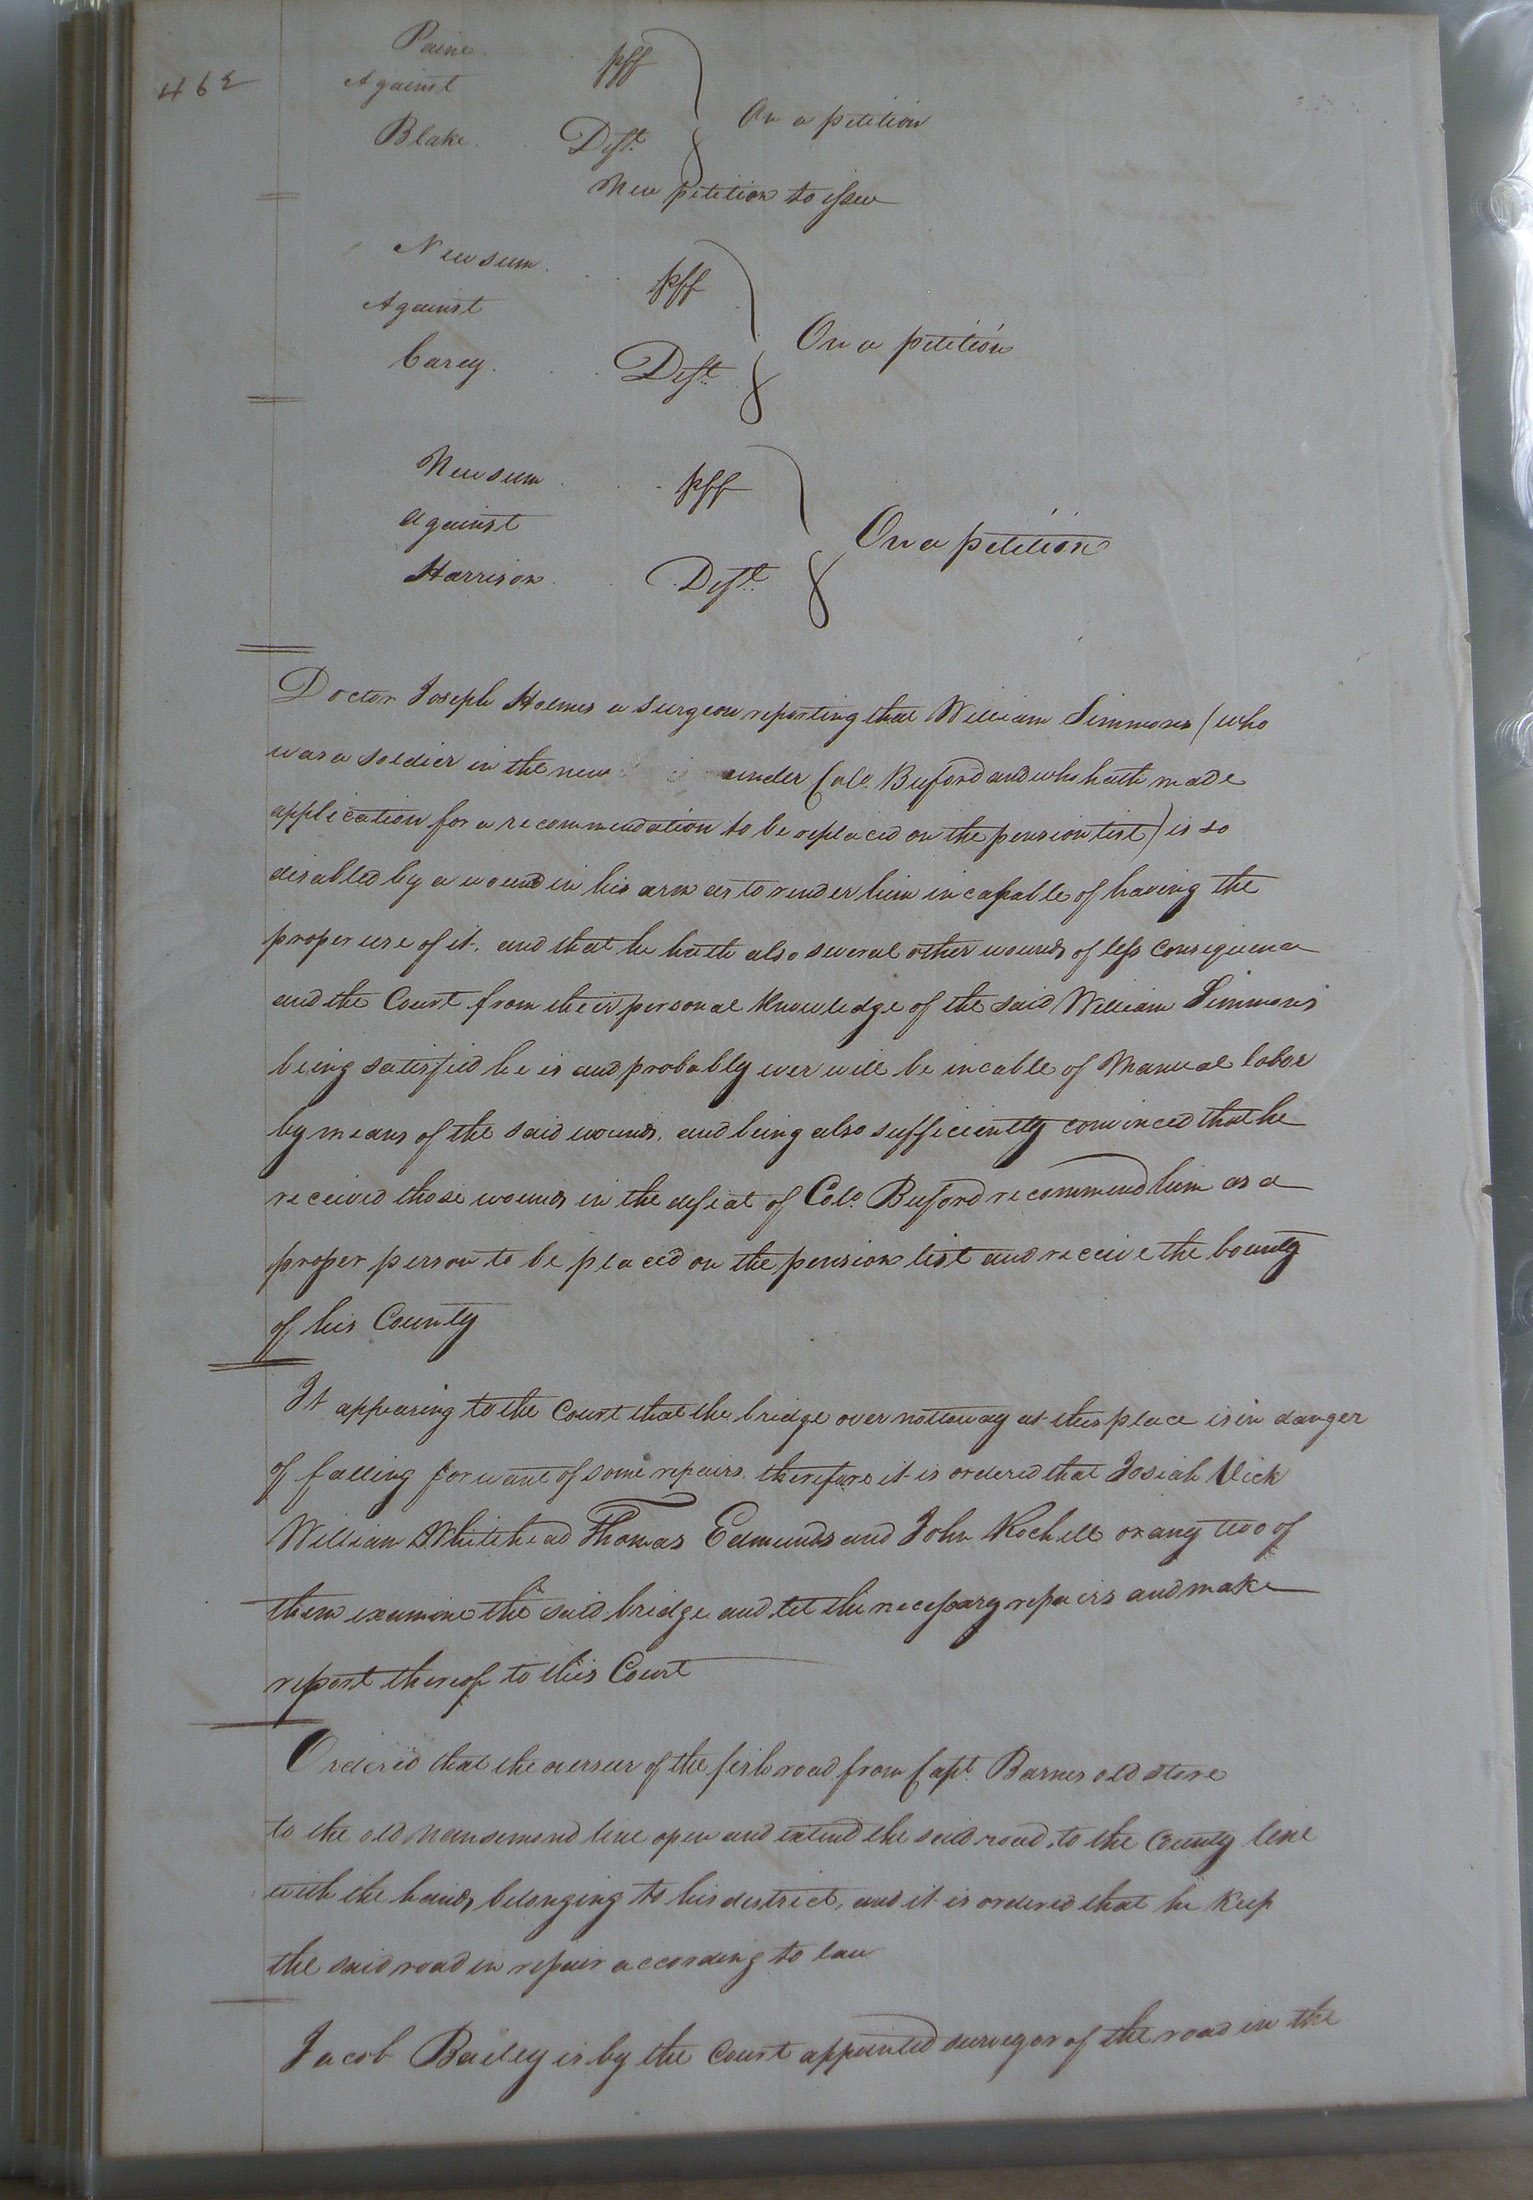 462
Paine . . pff
Against
Blake . . Deft. On a petition
New petition to issue
Newsum . . . pff
Against
Carey . . . Deft. On a petition
Newsum . . . pff
against
Harrison . . Deft. On a petition
Doctor Joseph Holmes a surgeon reporting that William Simmons (who
was a soldier in the new under Colo. Buford and who hath made
application for a recommendation to be replaced on the pension list) is so
disabled by a wound in his arm as to render him incapable of having the
proper use of it, and that he hath also several other wounds of less consequence
and the Court from their personal Knowledge of the said William Simmons
being satisfied he is and probably ever will be incable of Manual labor
by means of the said wounds, and being also sufficiently convinced that he
received those wounds in the defeat of Colo. Buford recommend him as a
proper person to be placed on the pension list and receive the bounty
of his County
It appearing to the Court that the bridge over nottoway at this place is in danger
of falling for want of some repairs, therefore it is ordered that Josiah Vick
William Whitehead Thomas Edmunds and John Rochell or any two of
them examine the said bridge and let the necessary repairs and make
report thereof to this Court
Ordered that the overseer of the fish road from Capt. Barnes old store
to the old nansemond line open and extend the said road, to the County line
with the hands belonging to his district, and it is ordered that he Keep
the said road in repair according to law
Jacob Bailey is by the Court appointed surveyor of the road in the